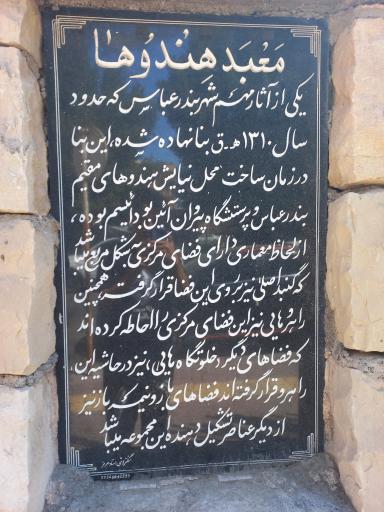 معبد هندوها
یکی از آثار مهم شهر بندرعباس که حدود
سال ۱۳۱۰ ه.ق بنا نهاده شده، این بنا
در زمان ساخت محل نیایش هندوهای مقیم
بندرعباس و پرستشگاه پیروان آئین بودائیسم بوده،
از لحاظ معماری دارای فضای مرکزی به شکل مربع میباشد
که گنبد اصلی نیز بر روی این فضا قرار گرفته، همچنین
راهروهایی نیز این فضای مرکزی را احاطه کرده اند
که فضاهای دیگر خلوتگاه هایی، نیز در حاشیه این
راهرو قرار گرفته اند فضاهای باز و نیمه باز نیز
از دیگر عناصر تشکیل دهنده این مجموعه میباشد